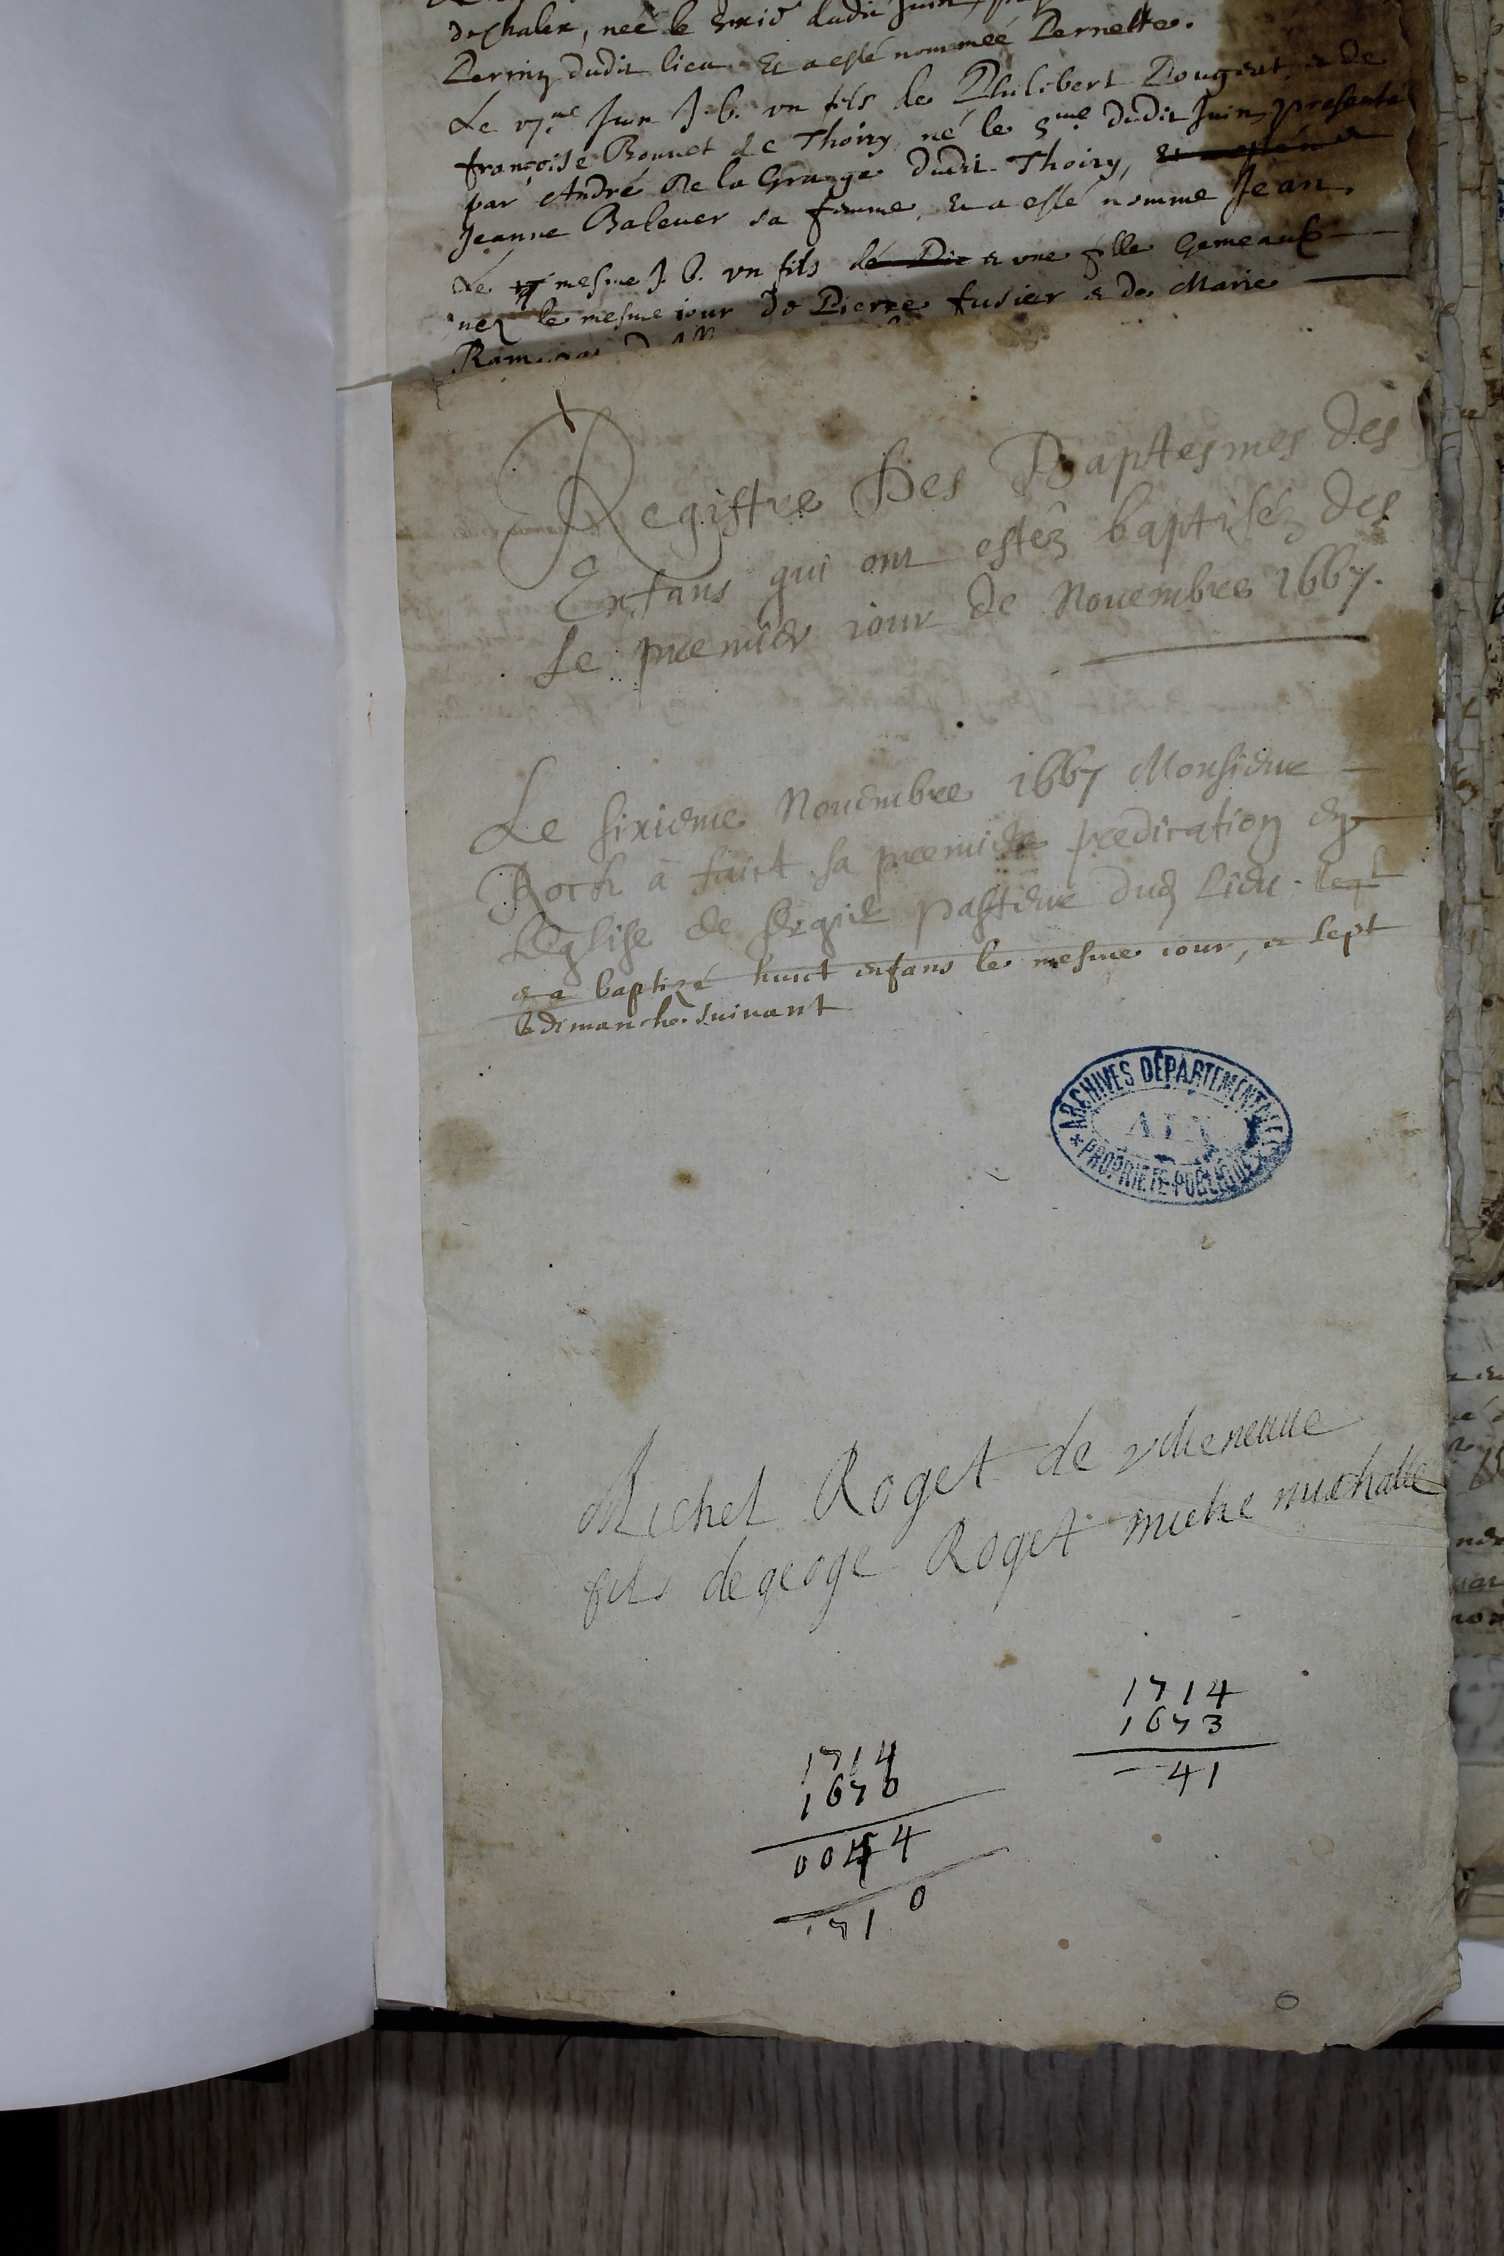 de Chalex, neé le dudit Juin,
Perrin dudit lieu. Et a esté nommeé Pernette.
Le Juin J. b. vn fils de Philibert Pougert, & de
françoise Bonnet de Thoiry, né le 5me dudit Juin, presenté
par André De la Grange dudit Thoiry, &
Jeanne Baleuer sa femme, Et a esté nommé Jean.
Le mesme J. B. vn fils & vne fille Gemeaux
nez le mesme iour de Pierre fusier & de Marie
Registre Des Baptesmes des
Enfans qui ont estéz baptiséz des
Le premier iour de Nouembre 1667.
Le sixieme Nouembre 1667 Monsieur
Roch à faict sa premiere predication en
L'Eglise de pasteur dud Lieu. leql
& a baptizé huict enfans le mesme iour, & sept
le dimanche suiuant
ARCHIVES DÉPARTEMENTALES
AIN
PROPRIÉTÉ PUBLIQUE
Michel Roget de villeneuue
fils de geoge Roget
1714
1673
41
1714
1670
0044
1710